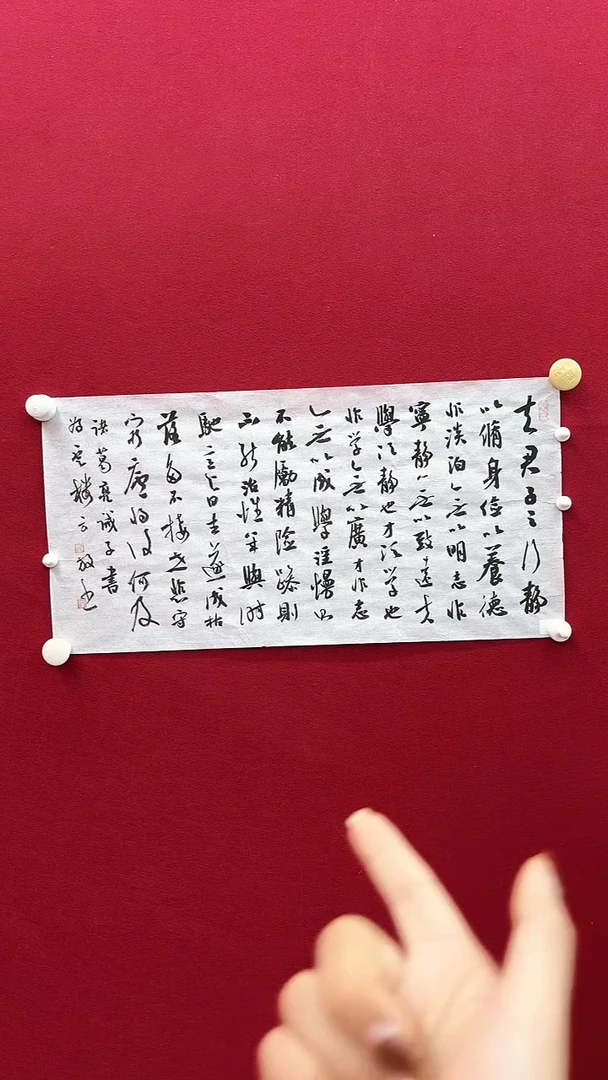 夫君子之行静
以脩身俭以養德
非淡泊无以明志非
寧静无以致遠夫
學须静也才须学也
非学无以廣才非志
无以成學淫慢则
不能勵精险躁則
不能治性年與时
馳意与日去遂成枯
落多不接世悲守
穷廬将復何及
诸葛亮诫子書